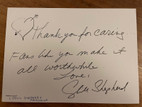 Thank you for caring
Fans like you make it
all worthwhile
Love,
Shepherd